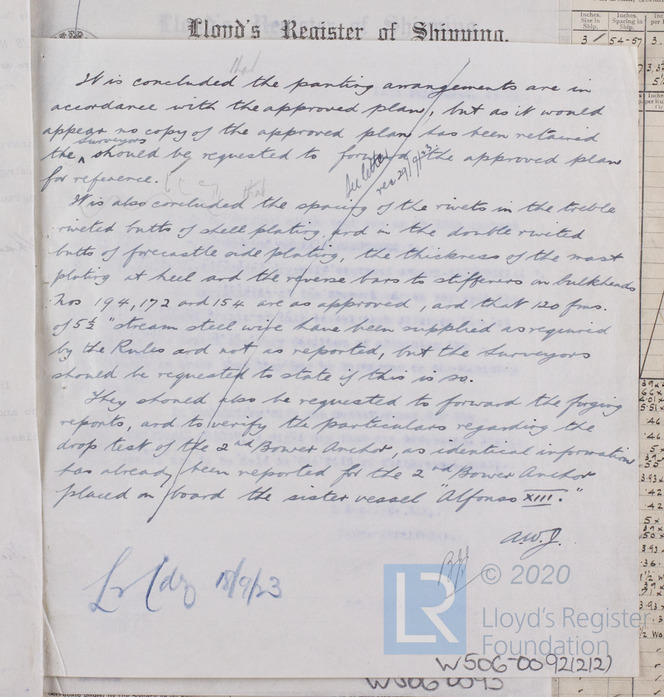 Lloyd's Register of Shipping.
that
It is concluded the panting arrangements are in
accordance with the approved plan, but as it would
appear no copy of the approved plan has been retained
surveyors
the should be requested to forward the approved plan
for reference.
See letter
rec 29/9/23
that
It is also concluded the spacing of the rivets in the treble
riveted butts of shell plating and in the double riveted
butts of forecastle side plating, the thickness of the mast
plating at heel and the reverse bars to stiffeners on bulkheads
Nos 194, 172 and 154 are as approved, and that 120 fms.
of 5½" stream steel wire have been supplied as required
by the Rules and not as reported, but the Surveyors
should be requested to state if this is so.
They should also be requested to forward the forging
reports, and to verify the particulars regarding the
drop test of the 2nd Bower Anchor, as identical information
has already been reported for the 2nd Bower Anchor
placed on board the sister vessel "Alfonso XIII."
A.W.J.
18/9/23
© 2020
LR
Lloyd's Register
Foundation
W506-0092(2/2)
W506-0093